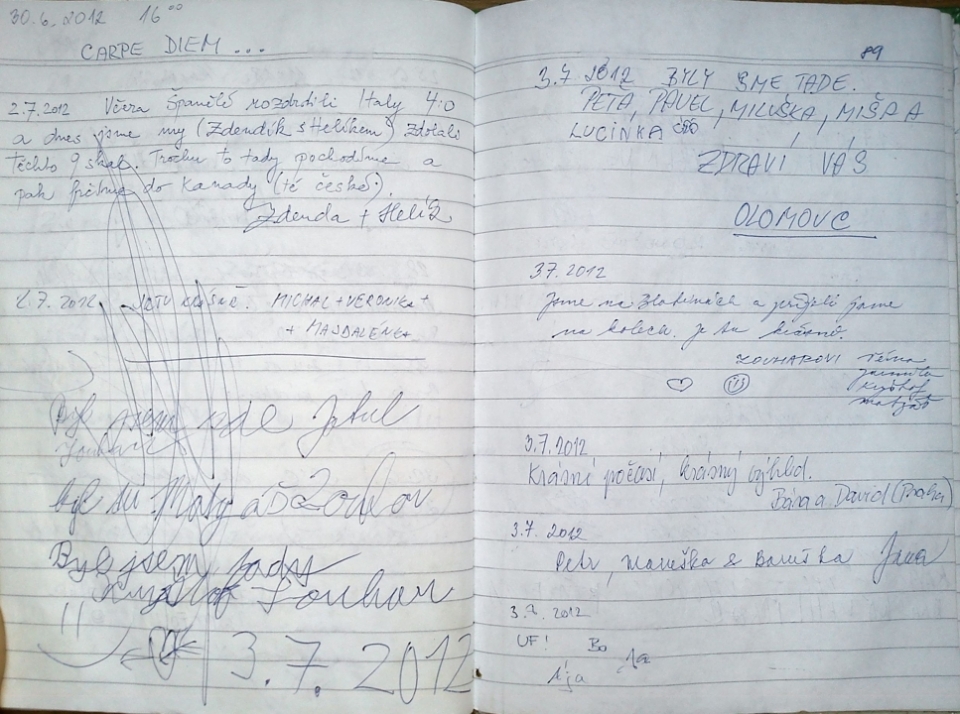 30.6.2012 16⁰⁰
CARPE DIEM ...
2.7.2012 Včera Španělé rozdrtili Italy 4:0
a dnes jsme my (Zdendík s Helíkem) zdolali
těchto 9 skal. Trochu to tady pochodíme a
pak frčíme do Kanady (té české).
Zdenda + Helča
2.7.2012 MICHAL + VERONIKA +
+ MAJDALENKA
Byl jsem zde
Zouhar
byl su Matyáš Zouhar
Byl jsem tady
Kryštof Zouhar
3.7.2012
89
3.7.2012 BYLY SME TADE.
PEŤA, PAVEL, MILUŠKA, MIŠA A
LUCINKA
ZDRAVÍ VÁS
OLOMOUC
3.7.2012
Jsme na a přijeli jsme
na kolech. je tu krásně.
ZOUHAROVI Téma
Jarmila
Kryštof
Matyáš
3.7.2012
Krásné počasí, krásný výhled.
Bára a David (Praha)
3.7.2012
Petr, Maruška & Baruška Jana
3.7.2012
UF! Bo